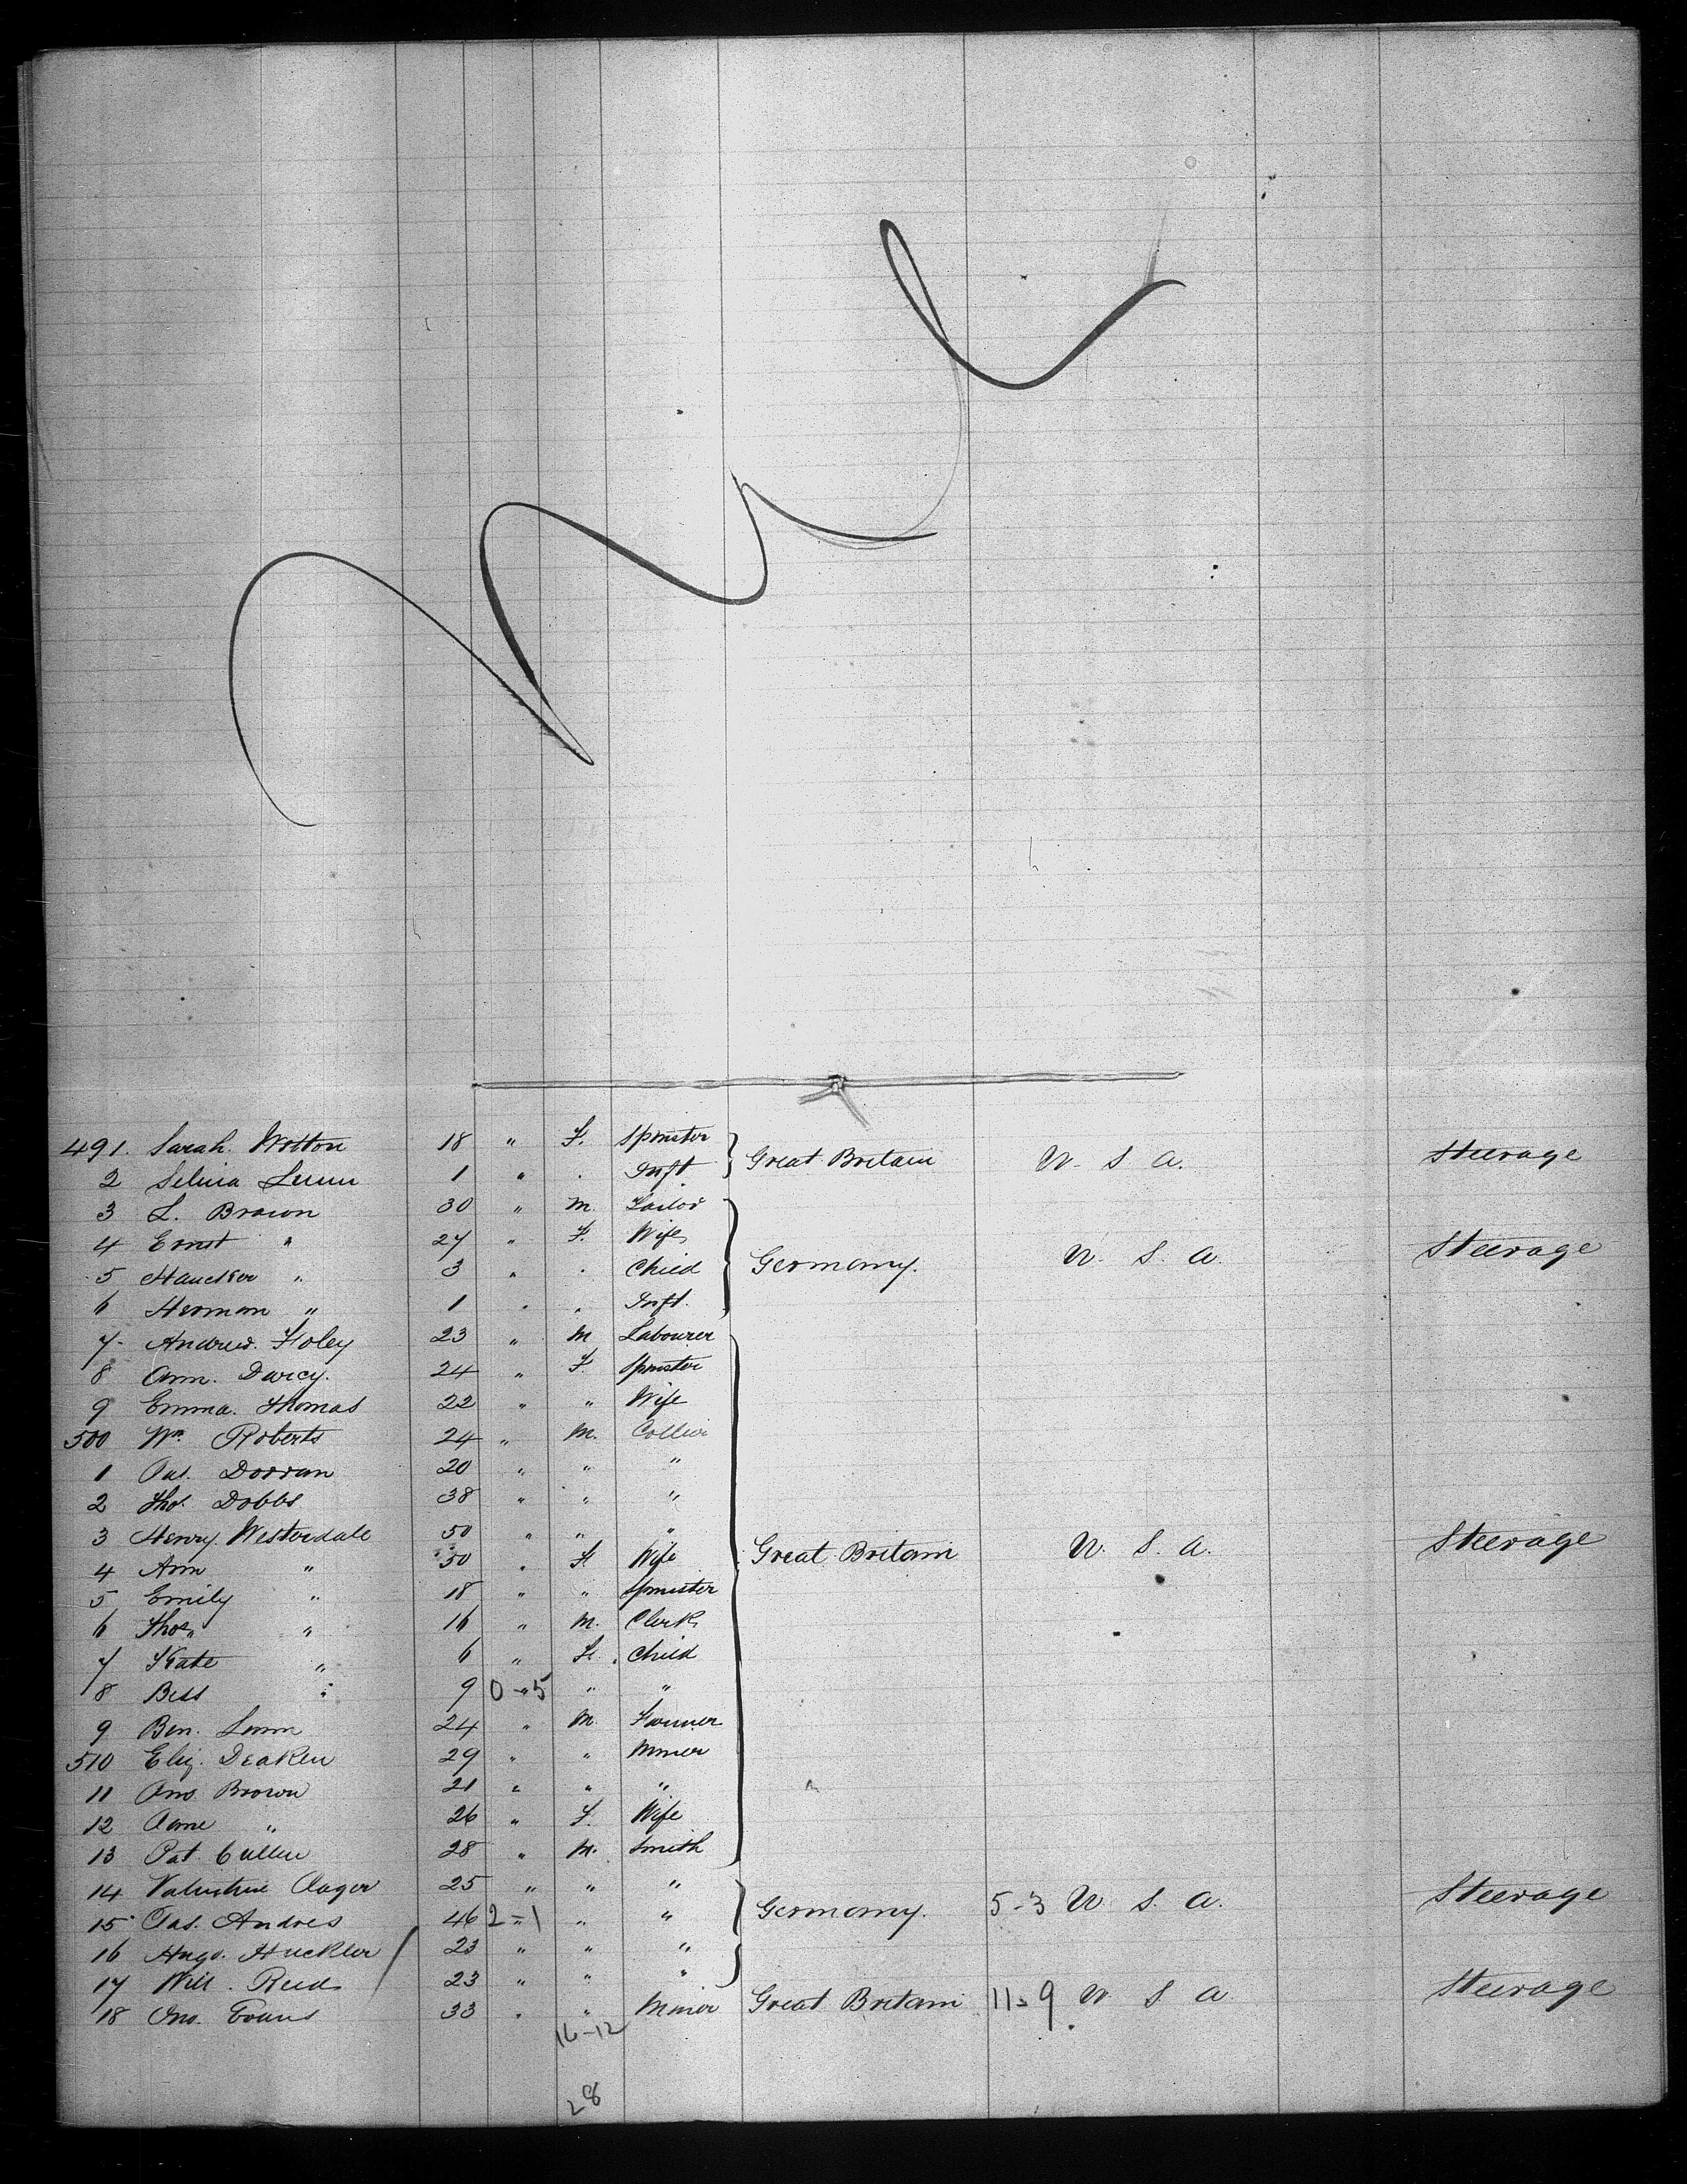 491. Sarah Wotton 18 " F. Spinster Great Britain U. S. A. Steerage
2 Selina Lunn 1 " . Inft.
3 L. Brown 30 " M. Tailor
4 Ernst " 27 " F. Wife Germany. U. S. A. Steerage
5 " 3 " . Child
6 Herman " 1 " " Inft.
7 Andrew Foley 23 " M Labourer
8 Ann. Darcy. 24 " F. Spinster
9 Emma. Thomas 22 " " Wife
500 Wm Roberts 24 " M. Collier
1 Pat. Dorran 20 " " "
2 Thos. Dobbs 38 " " "
3 Henry Westerdale 50 " " "
4 Ann " 50 " F Wife Great Britain U. S. A. Steerage
5 Emily " 18 " " Spinster
6 Thos. " 16 " M. Clerk
7 Kate " 6 " F. Child
8 Bess " 9 0-5 " "
9 Ben. Lunn 24 " M. Farmer
510 Elij. Deaken 29 " " Miner
11 Jno. Brown 21 " " "
12 Anne " 26 " F. Wife
13 Pat. Cullen 28 " M. Smith
14 Valentine 25 " " "
15 Jas. Andres 46 2-1 " " Germany. 5-3 U. S. A. Steerage
16 Hugo. Huckler 23 " " "
17 Will. Reed 23 " " "
18 Jno. Evans 33 " " Miner Great Britain 11-9 U S A Steerage
16-12
28